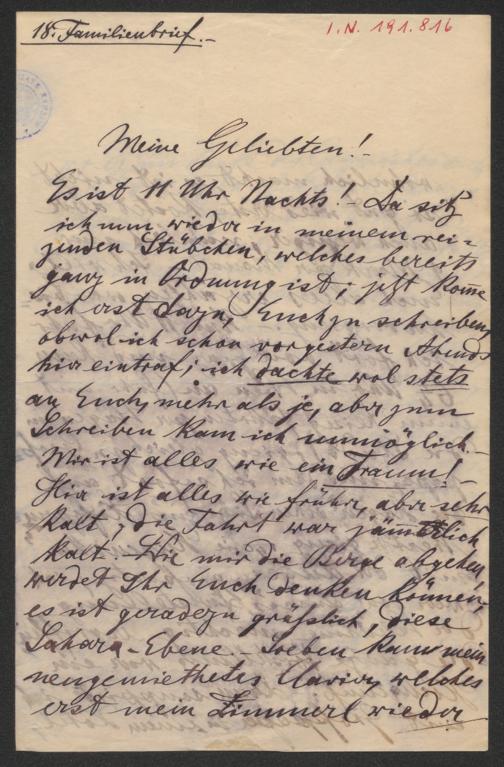 18. Familienbrief.–
I.N. 191.816
Meine Geliebten!–
Es ist 11 Uhr Nachts!– Da sitz
ich nun wieder in meinem rei-
zenden Stübchen, welches bereits
ganz in Ordnung ist; jetzt kome
ich erst dazu, Euch zu schreiben,
obwol ich schon vorgestern Abends
hier eintraf; ich dachte wol stets
an Euch, mehr als je, aber zum
Schreiben kam ich unmöglich.–
Mir ist alles wie ein Traum!–
Hier ist alles wie früher, aber sehr
kalt; die Fahrt war jämerlich
kalt.– Wie mir die Berge abgehen,
werdet Ihr Euch denken können,
es ist geradezu gräßlich, diese
Sahara-Ebene.– Soeben kam mein
neugemiethetes Clavier, welches
erst mein Zimmerl wieder